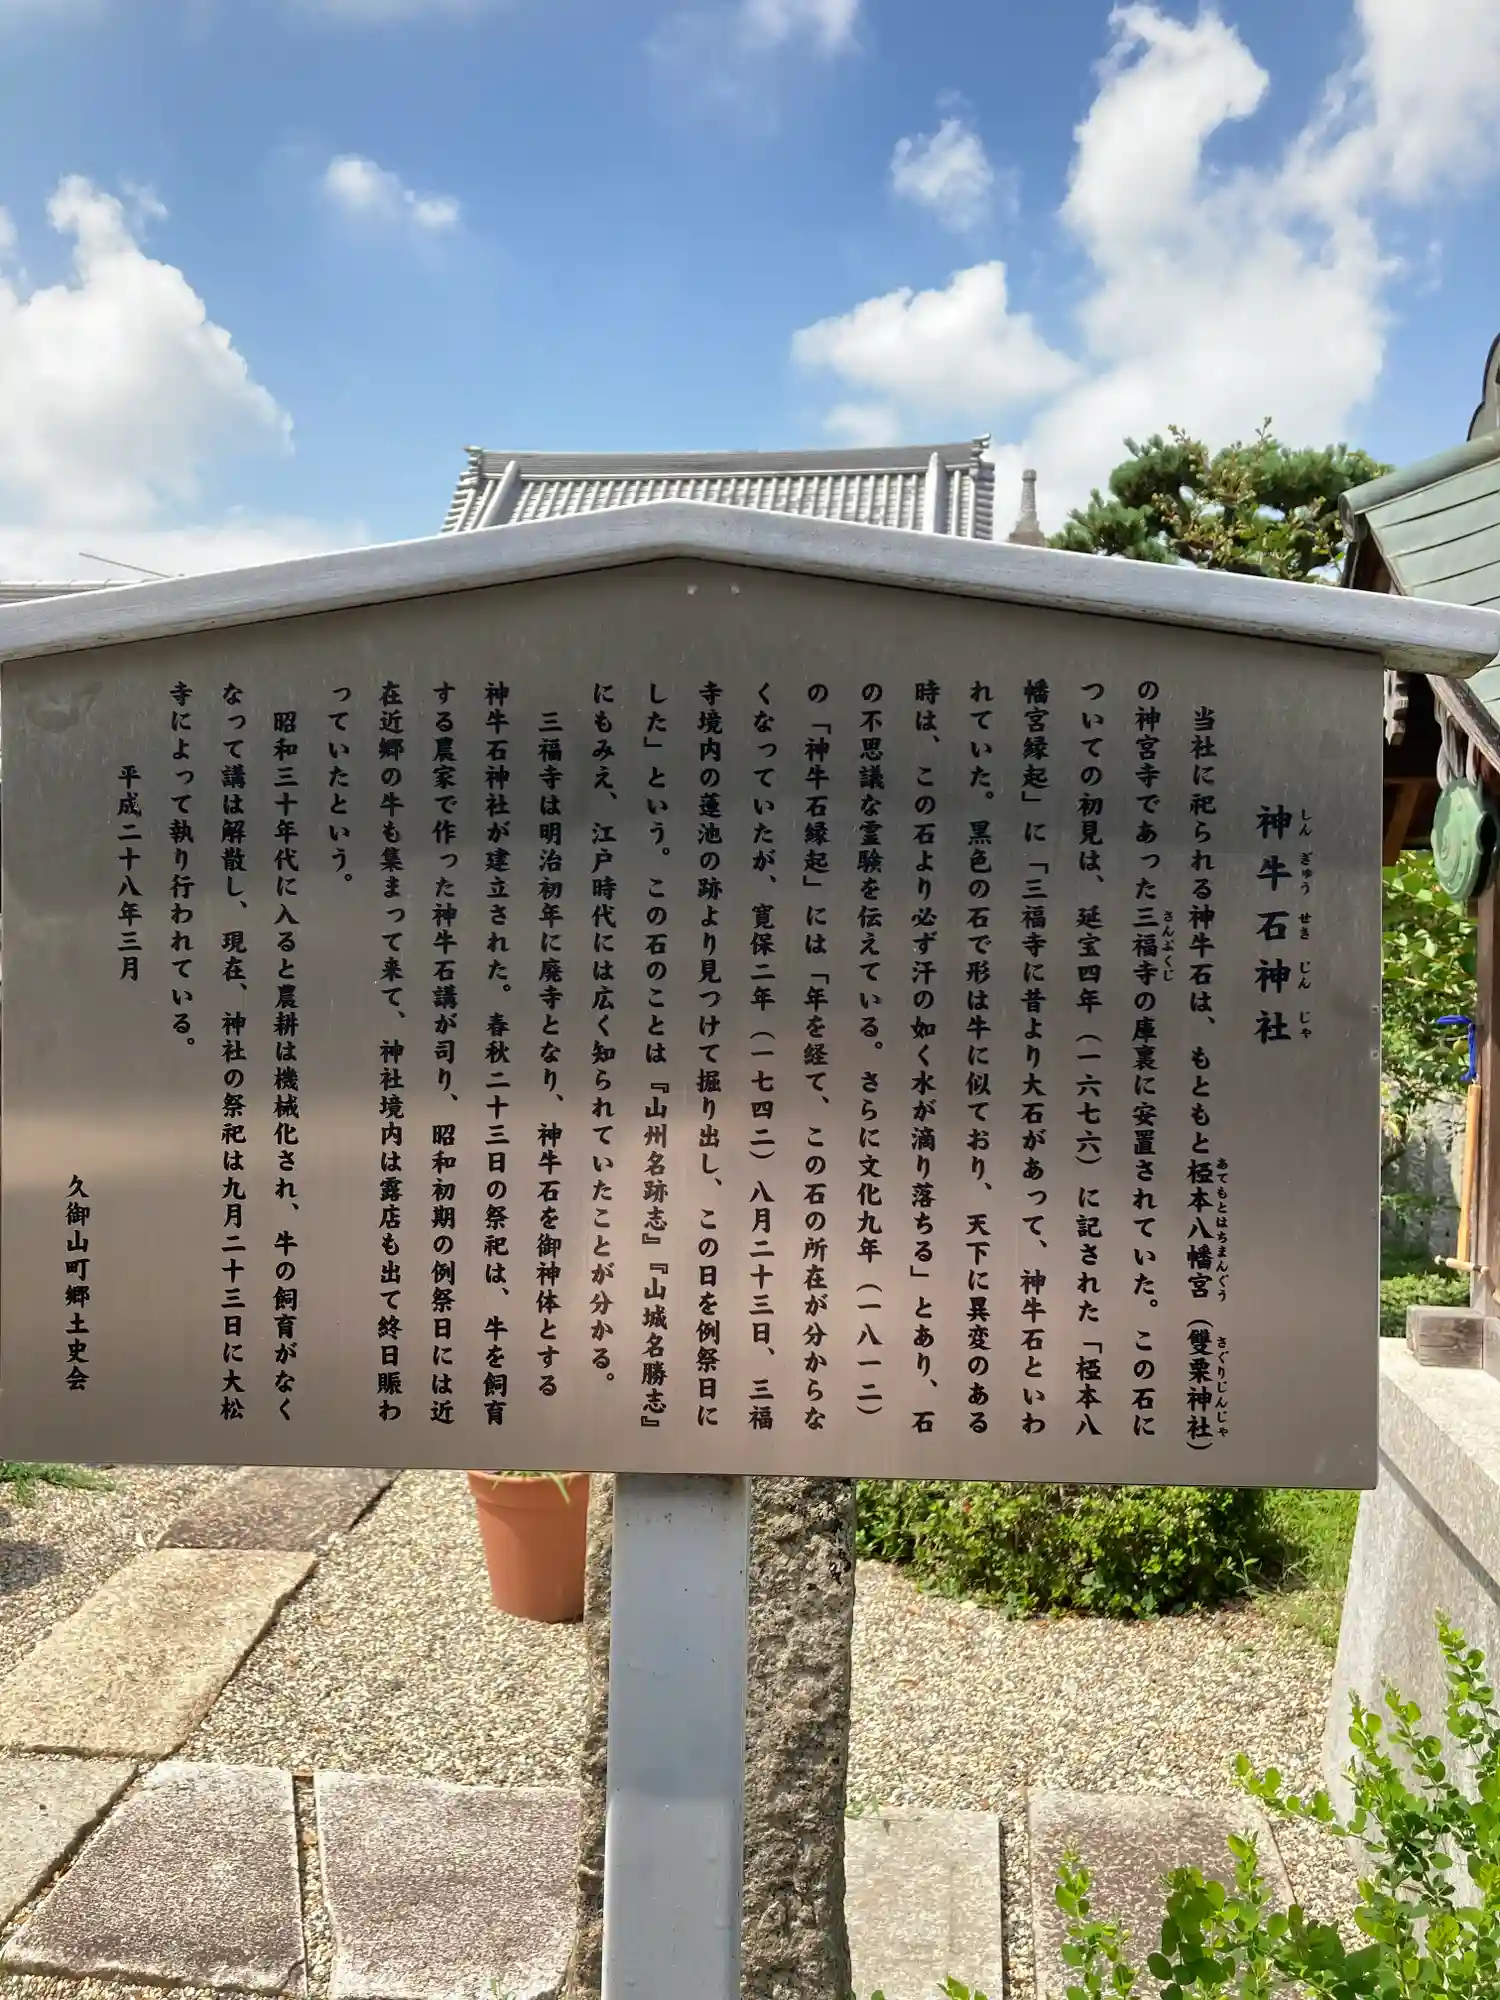 神牛石神社
しんぎゅうせきじんじゃ
当社に祀られる神牛石は、もともと桎本八幡宮(雙栗神社)
あてもとはちまんぐう
さぐりじんじゃ
の神宮寺であった三福寺の庫裏に安置されていた。この石に
さんぷくじ
ついての初見は、延宝四年(一六七六)に記された「桎本八
幡宮縁起」に「三福寺に昔より大石があって、神牛石といわ
れていた。黒色の石で形は牛に似ており、天下に異変のある
時は、この石より必ず汗の如く水が滴り落ちる」とあり、石
の不思議な霊験を伝えている。さらに文化九年(一八一二)
の「神牛石縁起」には「年を経て、この石の所在が分からな
くなっていたが、寛保二年(一七四二)八月二十三日、三福
寺境内の蓮池の跡より見つけて掘り出し、この日を例祭日に
した」という。この石のことは『山州名跡志』『山城名勝志』
にもみえ、江戸時代には広く知られていたことが分かる。
三福寺は明治初年に廃寺となり、神牛石を御神体とする
神牛石神社が建立された。春秋二十三日の祭祀は、牛を飼育
する農家で作った神牛石講が司り、昭和初期の例祭日には近
在近郷の牛も集まって来て、神社境内は露店も出て終日賑わ
っていたという。
昭和三十年代に入ると農耕は機械化され、牛の飼育がなく
なって講は解散し、現在、神社の祭祀は九月二十三日に大松
寺によって執り行われている。
平成二十八年三月
久御山町郷土史会